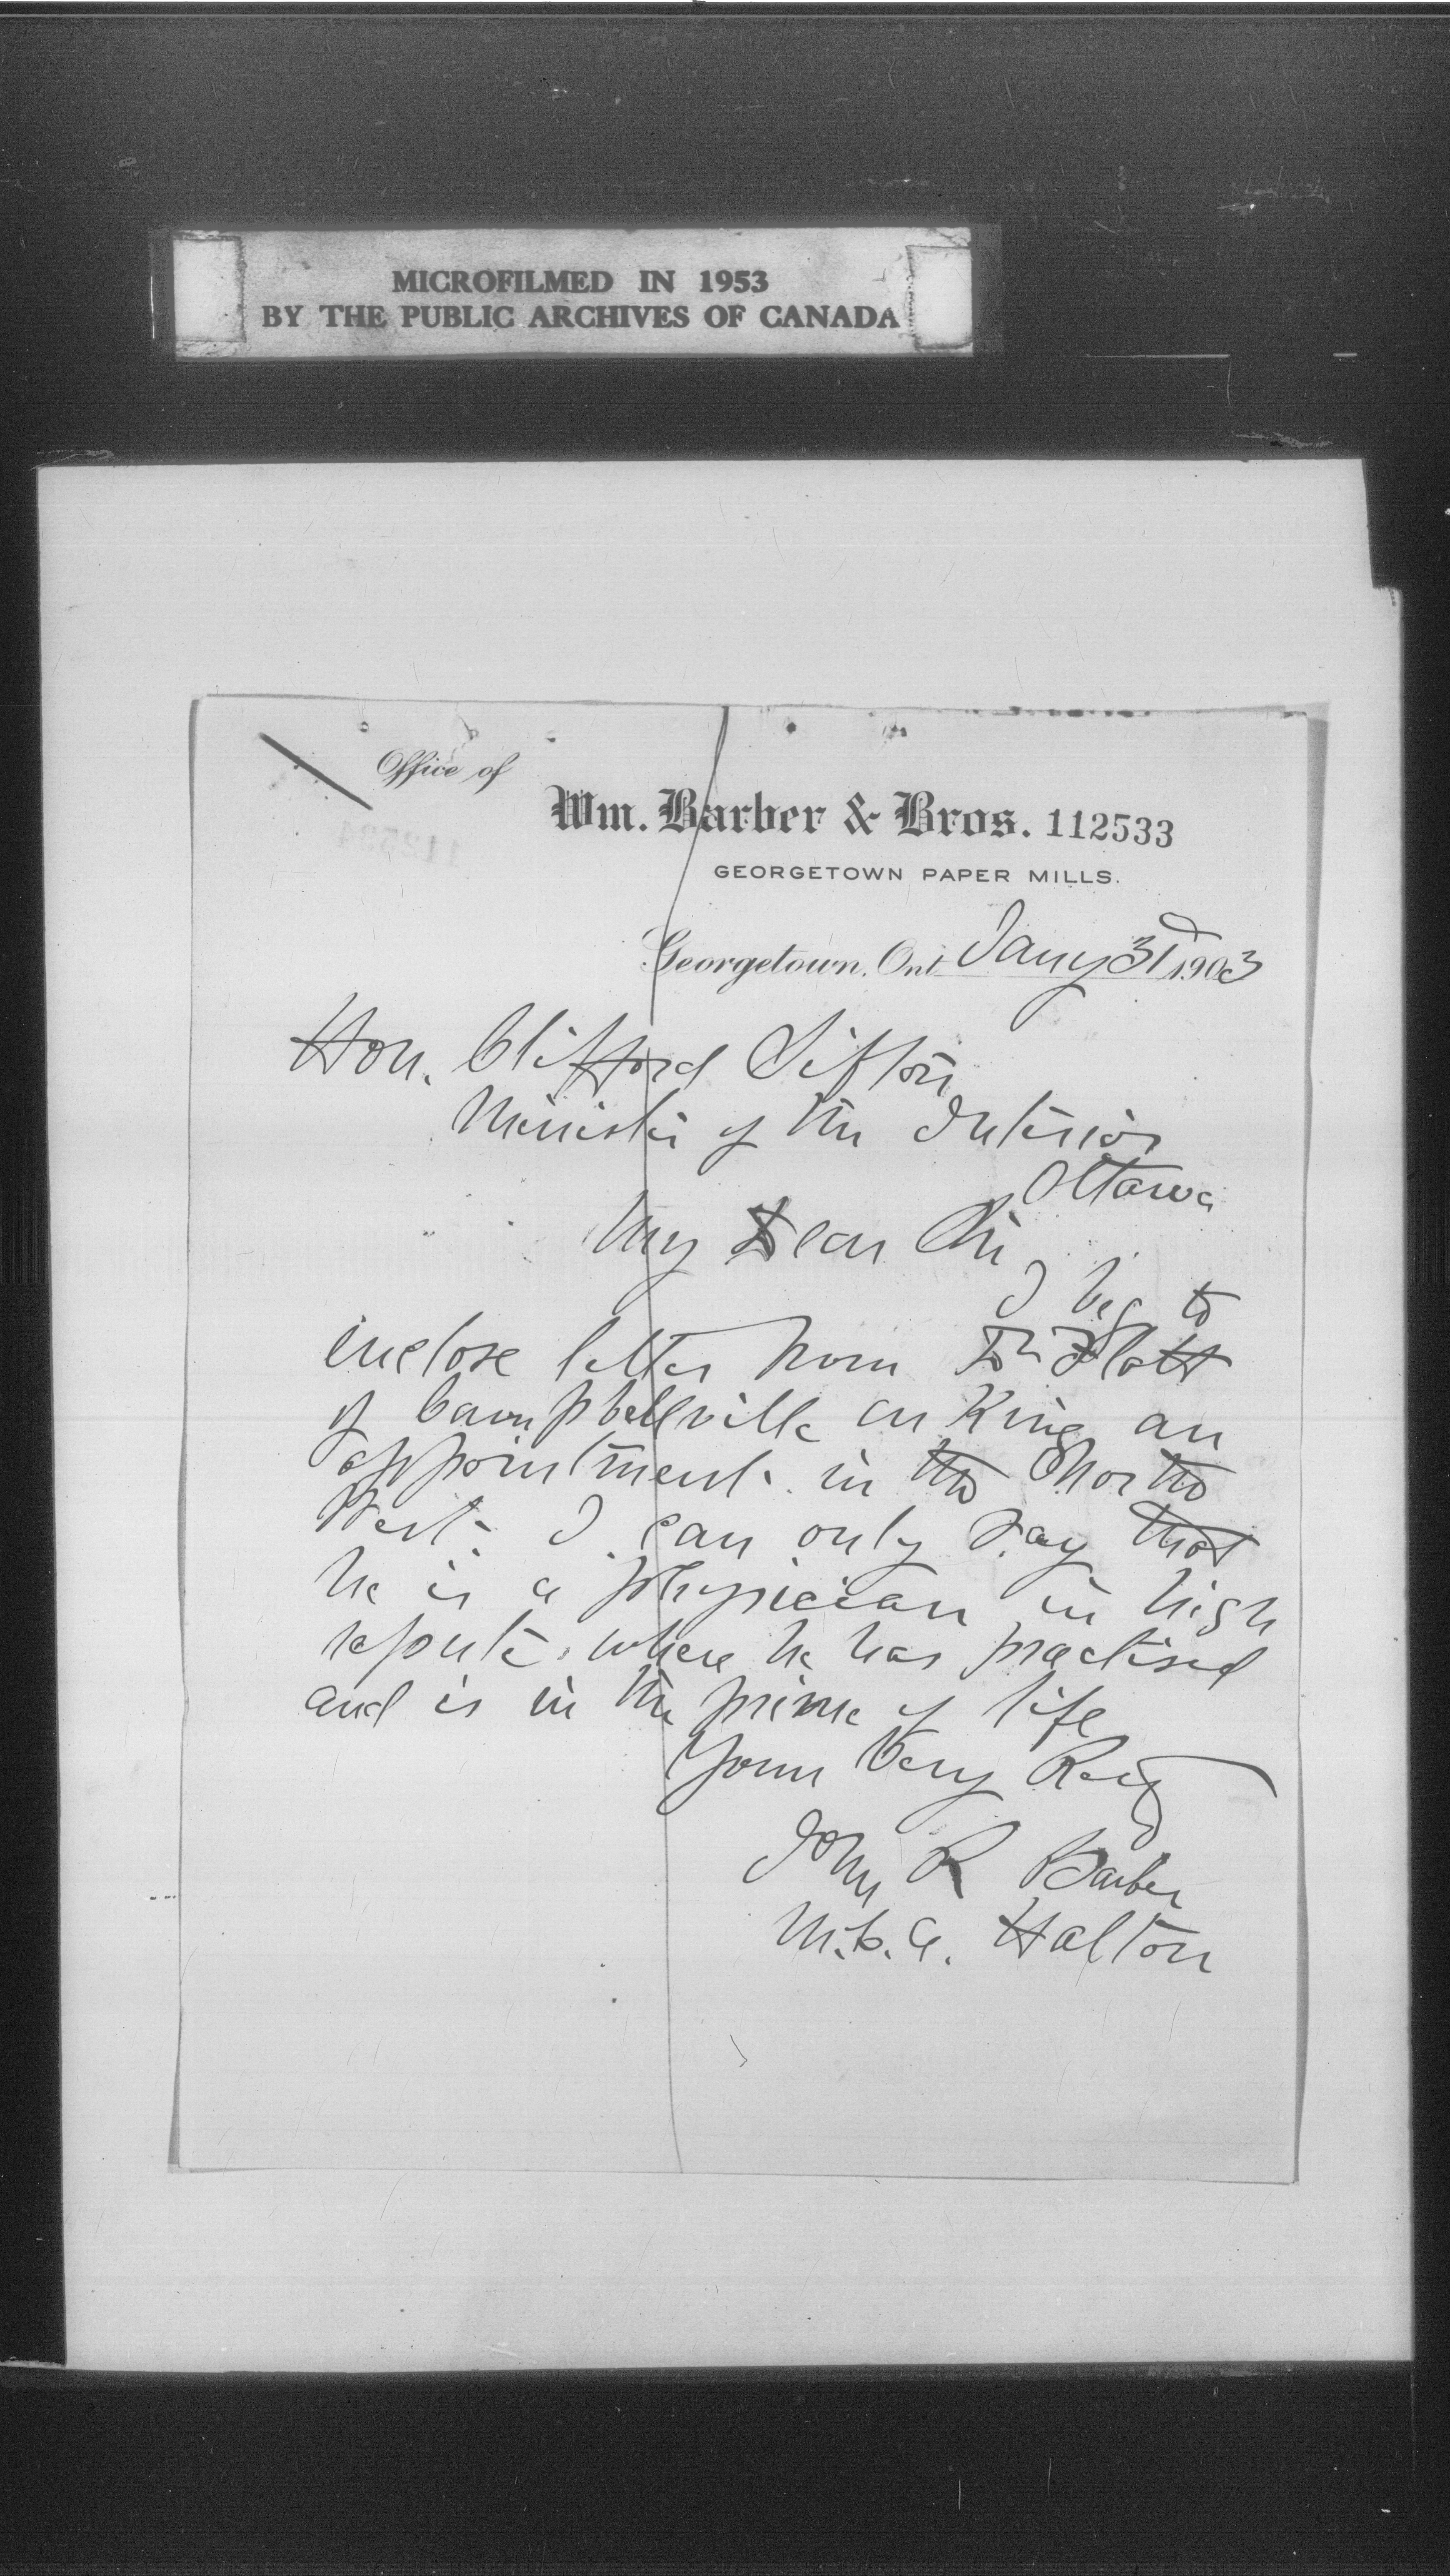 MICROFILMED IN 1953
BY THE PUBLIC ARCHIVES OF CANADA
Office of
Wm. Barber & Bros. 112533
GEORGETOWN PAPER MILLS.
Georgetown, Ont. Jany 31 1903
Hon. Clifford Sifton
Minister of the Interior
Ottawa
My Dear Sir
I beg to
inclose letter from Dr
of Campbellville asking an
appointment in the North
West. I can only say that
he is a physician in high
repute where he has practised
and is in the prime of life
Yours Very
John R Barber
M.L.A. Halton